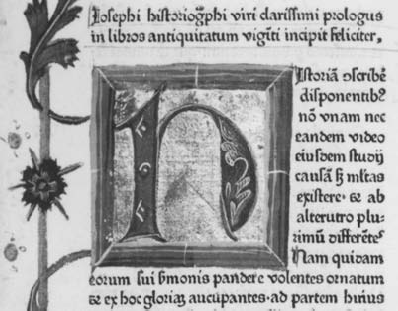 Iosephi historiogͣphi viri clarissimi prologus
in libros antiquitatum vigīti incipit feliciter.
hIstoriā ↄscribē
disponentibꝫ
nō vnam nec
eandem video
eiusdem studij
causā sꝫ ml̃tas
existere· ⁊ ab
alterutro plu-
rimū differētes
Nam quidam
eorum sui s̃monis pandere volentes ornatum
⁊ ex hoc gloriaꝫ aucupantes· ad partem huius